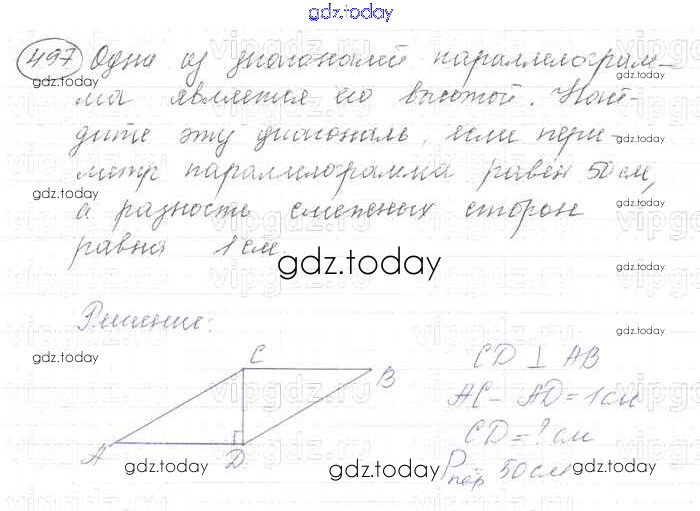 gdz.today
497 Одна из диагоналей параллелограм-
ма является его высотой. Най-
дите эту диагональ, если пери-
метр параллелограмма равен 50 см,
а разность смежных сторон
равна 1 см.
gdz.today
Решение:
C
B
A
D
CD ⊥ AB
AC - AD = 1 см
CD = ? см
Pпер. = 50 см
gdz.today
gdz.today
gdz.today
gdz.today
gdz.today
gdz.today
gdz.today
gdz.today
gdz.today
gdz.today
gdz.today